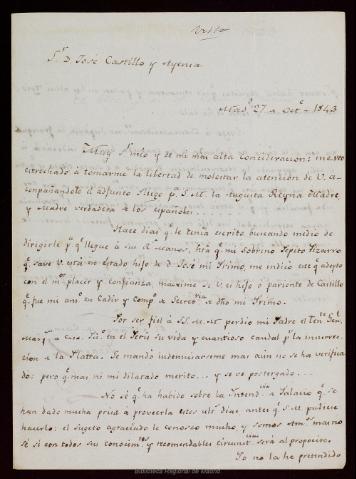 Visto
Sr. D. José Castillo y Ayensa
Mad. 27 de Octe. 1843
Muy Sr. mio y de mi mas alta consideracion: me veo
estrechado á tomarme la libertad de molestar la atencion de V. a-
compañandole el adjunto Pliego pa. S. M. la Augusta Reyna Madre
y Madre verdadera de los Españoles.
Hace dias qe. le tenia escrito buscando medio de
dirigirle pa. qe. llegue á sus Rs. manos, hta. qe. mi sobrino Pepito Pizarro
qe. sabe V. era de Estado hijo de D. José mi Primo, me indicó este qe. adopto
con el mor. placer y confianza, maxime si V. es hijo ó pariente de Castillo
qe. fue mi amo. en Cadiz y compo. de Secreria. de dho. mi Primo.
Por ser fiel á SS. MM. perdió mi Padre el Tene. Genl.
en el Perú su vida y cuantioso caudal pr. la insurrec-
cion de la Plata. Se mandó indemnizarme mas aun no se ha verifica-
do: pero qe. mas ni mi dilatado merito.... y se ve postergado....
No sé qe. ha habido sobre la Intend.cia de Palacio qe. se
han dado mucha prisa á proveerla estos ults. dias, antes qe. S. M. pudiese
hacerlo: el sugeto agraciado le conozco mucho, y somos ams. mas no
sé si con todos sus conocimtos. y recomendables circunsts. será al proposito.
Yo no la he pretendido
Biblioteca Regional de Madrid